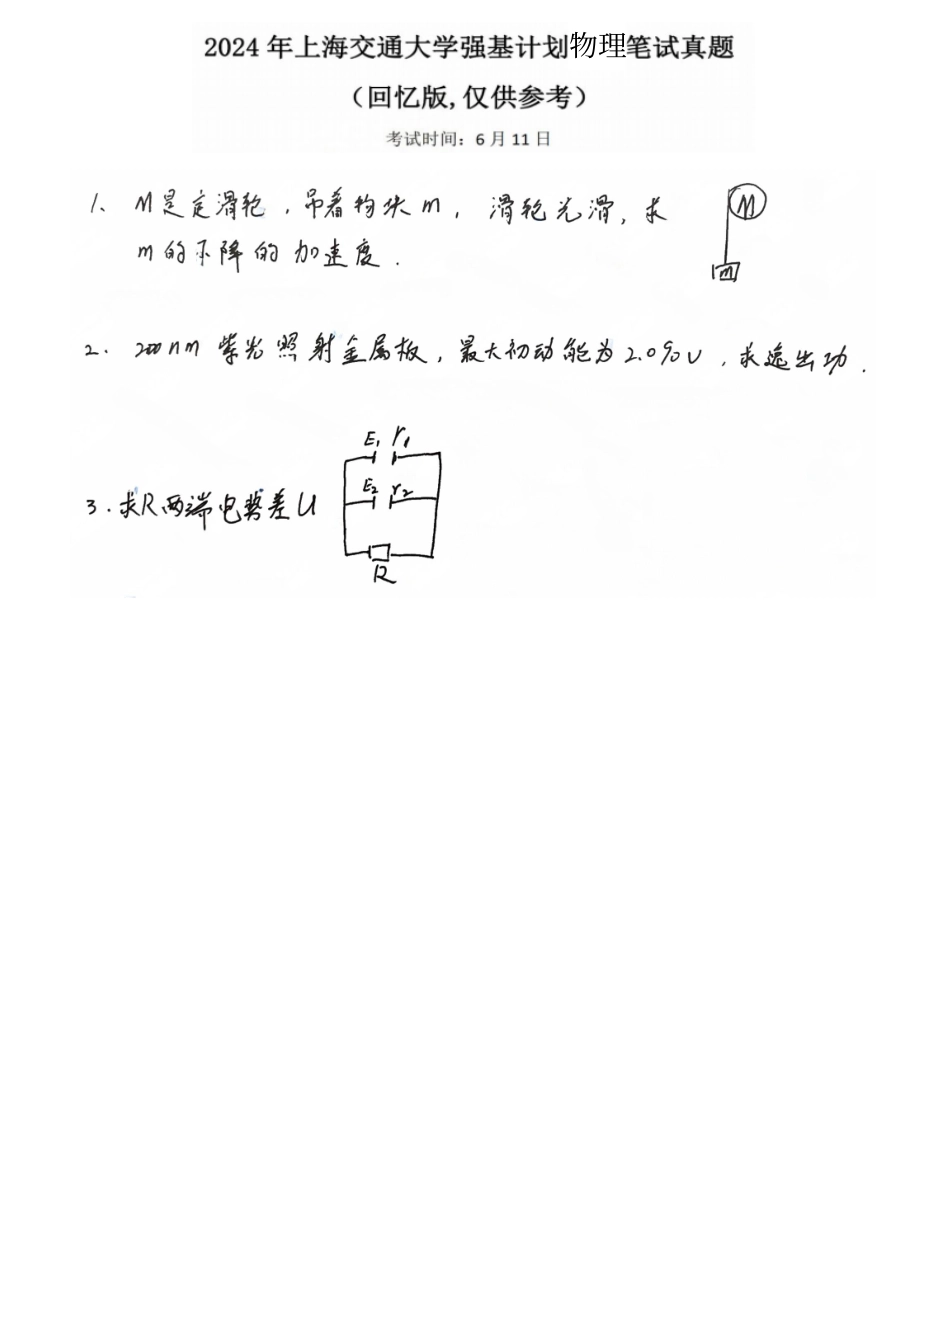 2024 年上海交通大学强基计划物理笔试真题
（回忆版,仅供参考）
考试时间：6 月 11 日
1、M是定滑轮，吊着物块m，滑轮光滑，求
M
m的下降的加速度．
m
2．200nm 紫光照射金属板，最大初动能为2.090v，求逸出功．
E₁ r₁
E₂ r₂
3．求R两端电势差U
R